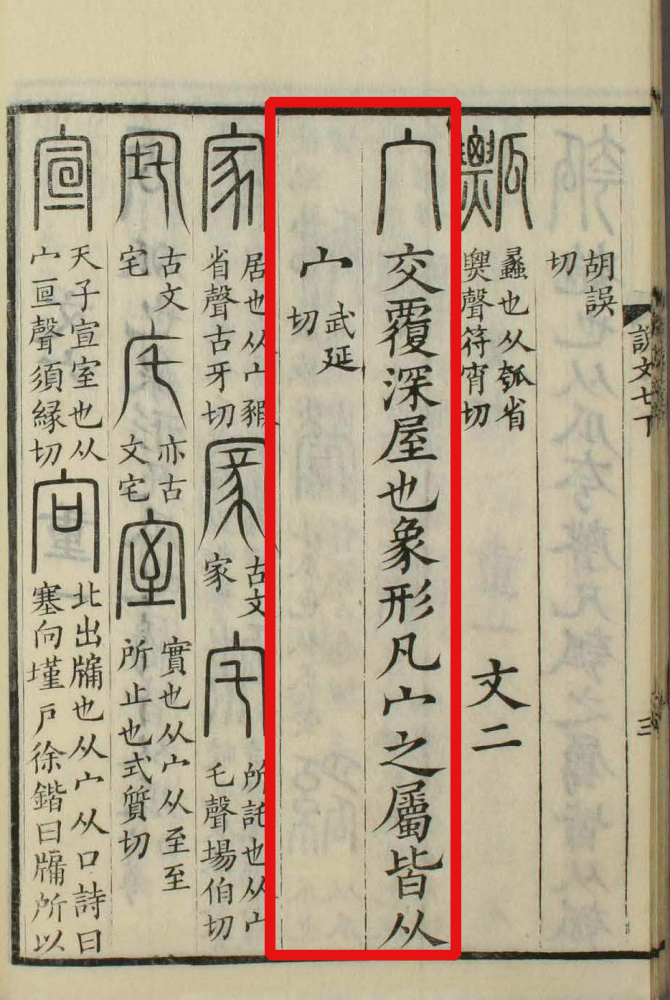 說文七下
三
胡誤
切
瓢
蠡也从瓠省
聲符宵切
文二
宀交覆深屋也象形凡宀之屬皆从
宀
武延
切
家
居也从宀豭
省聲古牙切
古文
家
宅
所託也从宀
乇聲場伯切
古文
宅
亦古
文宅
室
實也从宀从至至
所止也式質切
宣
天子宣室也从
宀亘聲須緣切
向
北出牖也从宀从口詩曰
塞向墐戶徐鍇曰牖所以